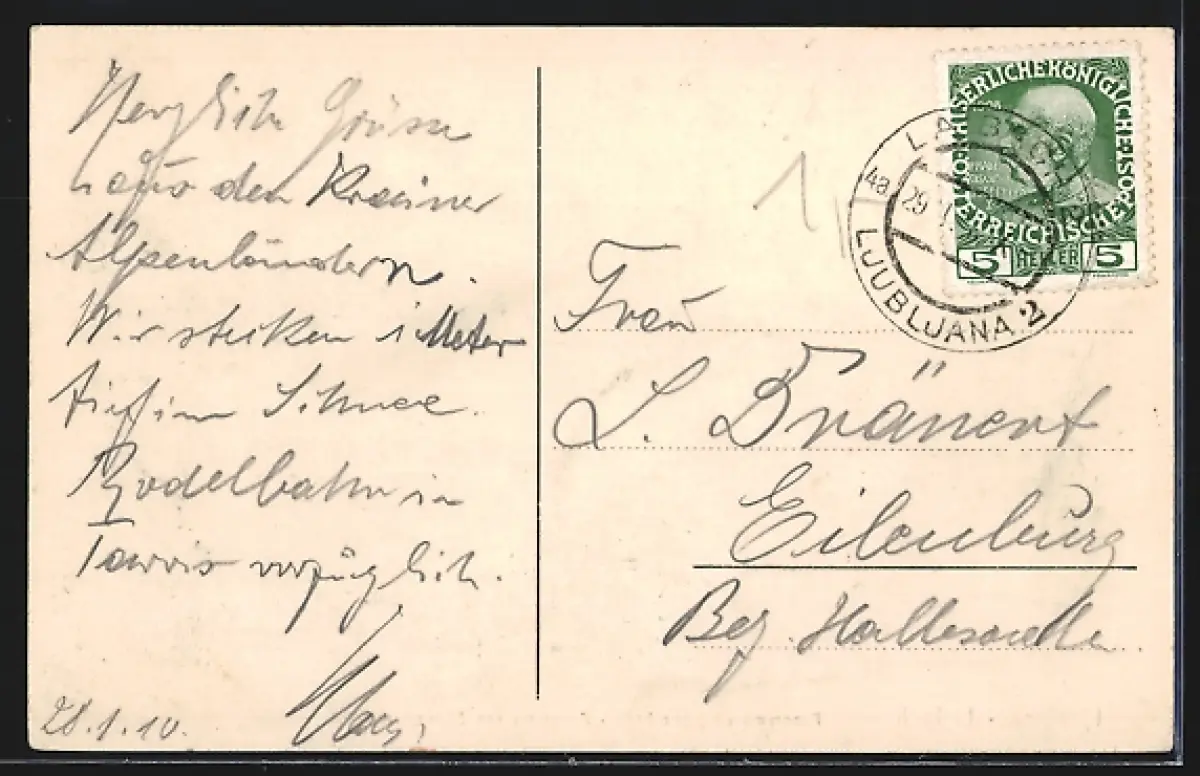 Herzliche Grüsse
aus den Krainer
Alpenländern.
Wir stecken 1 Meter
tief im Schnee.
Rodelbahn in
Tarvis vorzüglich.
28.1.10.
1
KAISERLICHE KÖNIGLICHE
ÖSTERREICHISCHE POST
5 HELLER 5
LAIBACH
4a 29
LJUBLJANA 2
Frau
L. Bränert
Eilenburg
Bez. Halle